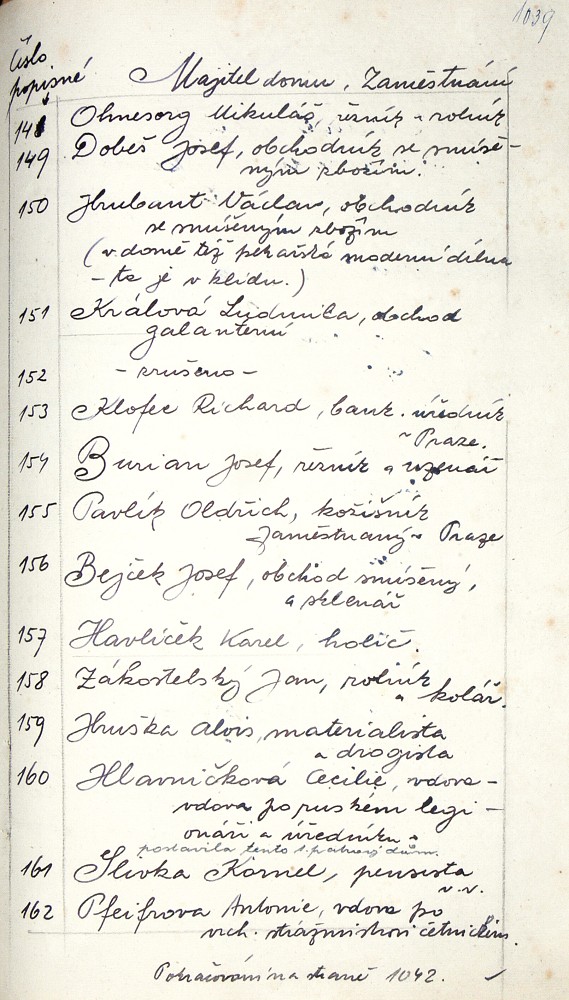 1039
Číslo
popisné
Majitel domu, Zaměstnání
148 Ohnesorg Mikuláš, řezník a rolník
149 Dobeš Josef, obchodník se smíše-
ným zbožím.
150 Hrubant Václav, obchodník
se smíšeným zbožím
(v domě též pekařská moderní dílna
- ta je v klidu.)
151 Králová Ludmila, obchod
galanterní
152 - zrušeno -
153 Klofec Richard, bank. úředník
v Praze.
154 Burian Josef, řezník a uzenář
155 Pavlík Oldřich, kožišník
zaměstnaný v Praze
156 Bejček Josef, obchod smíšený,
a sklenář
157 Havlíček Karel, holič.
158 Zákostelský Jan, rolník
a kolář.
159 Hruška Alois, materialista
a drogista
160 Hlavničková Cecilie, vdova -
vdova po ruském legi-
onáři a úředníku -
postavila tento 1. patrový dům.
161 Slivka Kornel, pensista
v.v.
162 Pfeifrova Antonie, vdova po
vrch. strážmistrovi četnickém.
Pokračování na straně 1042.